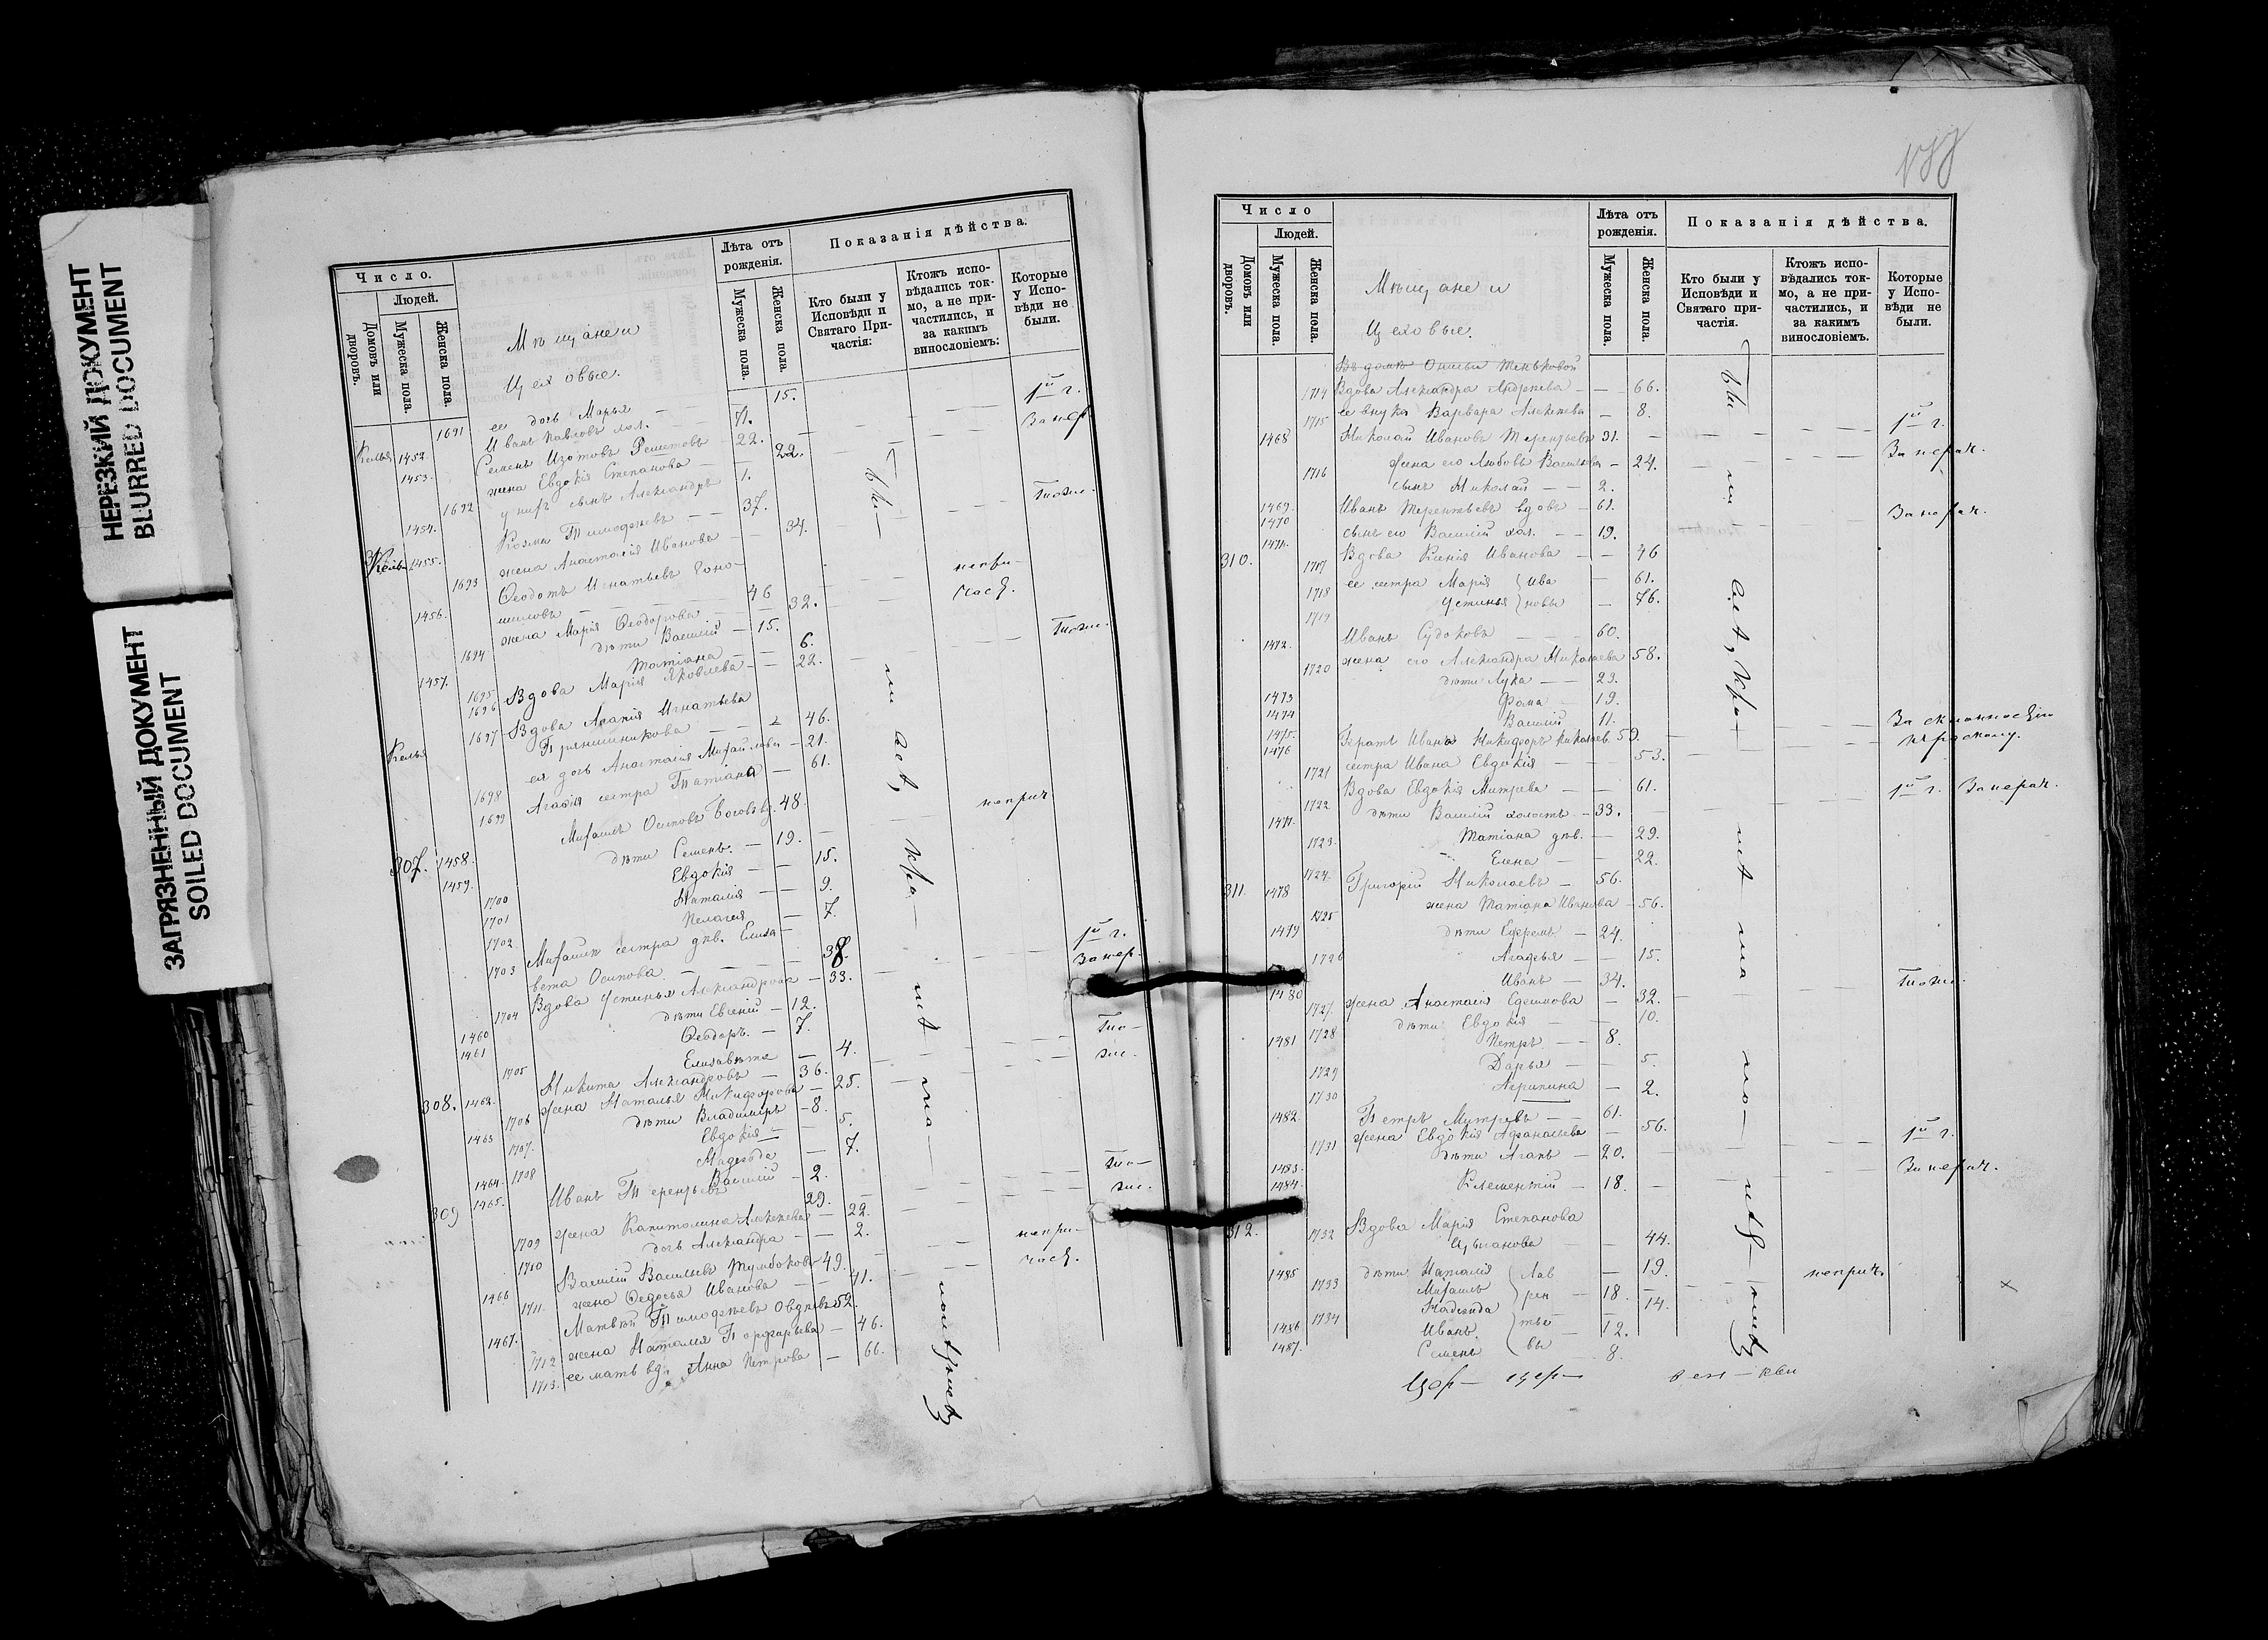 НЕРЕЗКИЙ ДОКУМЕНТ
BLURRED DOCUMENT
ЗАГРЯЗНЕННЫЙ ДОКУМЕНТ
SOILED DOCUMENT
Число.
Людей.
Домовъ или дворовъ.
Мужеска пола.
Женска пола.
Мѣщане и
Цеховые.
Лѣта отъ рожденія.
Мужеска пола.
Женска пола.
Показанія дѣйства.
Кто были у Исповѣди и Святаго Причастія:
Ктожъ исповѣдались токмо, а не причастились, и за какимъ винословіемъ:
Которые у Исповѣди не были.
1691 ее дочь Марья — 15.
Келья 1452 Иванъ Павловъ хол. — 71. 1й г.
1453. Семенъ Изотовъ Решетовъ 22. За нер.
1692 жена Евдокія Степанова — 22.
1454. у нихъ сынъ Александръ 1.
Келья 1455. Козма Тимофѣевъ — 37. Тоже.
1693 жена Анастасія Иванова — 34.
1456. Ѳеодотъ Игнатьевъ
46 непри-
1694 жена Марія Ѳеодорова — 32. част.
1457. дѣти Василій — 15.
1695 Татіана — 6.
1696 Вдова Марія Яковлева — 22. Тоже.
Келья 1697 Вдова Агапія Игнатьева
Прянишникова — 46.
1698 ея дочь Анастасія Михайлова — 21.
1699 Агапіи сестра Татіана — 61.
307. 1458. Михаилъ Осиповъ 48. неприч
1459. дѣти Семенъ. — 19.
1700 Евдокія — 15.
1701 Наталія — 9.
1702 Пелагея — 7.
1703 Михаила сестра дѣв. Елиза-
вета Осипова — 38. 1й г.
1704 Вдова Устинья Александрова — 33. За нер.
1460 дѣти Евгеній — 12.
1461 Ѳеодоръ — 7.
1705 Елизавета — 4.
308. 1462. Никита Александровъ — 36. То-
1706 жена Наталья Никифорова — 25. же.
1463 дѣти Владиміръ — 8.
1707. Евдокія — 5.
1708 Надежда — 7.
1464. Василій — 2.
309 1465. Иванъ Терентьевъ 29. То-
1709 жена Капитолина Алексѣева — 22. же.
1710 дочь Александра — 2.
1466 Василій Васильевъ Тумбоковъ 49. непри-
1711. жена Ѳедосья Иванова — 41. част.
1467. Матвей Тимофѣевъ Овдѣевъ 52.
1712 жена Наталія Порфирьева — 46.
1713. ее мать вд. Анна Петрова — 66.
Число
Людей.
Домовъ или дворовъ.
Мужеска пола.
Женска пола.
Мѣщане и
Цеховые.
Лѣта отъ рожденія.
Мужеска пола.
Женска пола.
Показанія дѣйства.
Кто были у Исповѣди и Святаго причастія.
Ктожъ исповѣдались токмо, а не причастились, и за какимъ винословіемъ.
Которые у Исповѣди не были.
Въ домѣ
1714 Вдова Александра Андреева — 66.
1715 ее внука Варвара Алексѣева — 8.
1468 Николай Ивановъ Терентьевъ 31. 1й г.
1716 жена его Любовь Васильева — 24. За нерач.
1469. сынъ Николай — 2.
1470 Иванъ Терентьевъ вдовъ — 61.
1471. сынъ его Василій хол. — 19. За нерач.
310. 1717 Вдова Ксенія Иванова — 46
1718 ее сестра Марія Ива — 61.
1719 Устинья новы — 76.
1472. Иванъ Судоковъ — 60.
1720 жена его Александра Николаева 58.
1473 дѣти Лука — 23.
1474 Фома — 19.
1475. Василій 11.
1476 Братъ Ивана Никифоръ Николаев. 50. За склонностію
къ расколу.
1721 сестра Ивана Евдокія — 53.
1722 Вдова Евдокія Митрева — 61.
1477. дѣти Василій холостъ — 33. 1й г. За нерач.
1723 Татіана дѣв. — 29.
1724. Елена — 22.
311. 1478 Григорій Николаевъ — 56.
1725 жена Татіана Иванова — 56.
1479 дѣти Ефремъ — 24.
1726 Агафья — 15.
1480 Иванъ — 34. Тоже.
1727. жена Анастасія Ефимова — 32.
1728 дѣти Евдокія — 10.
1481 Петръ — 8.
1729 Дарья — 5.
1730 Агрипина — 2.
1482. Петръ Митревъ — 61.
1731 жена Евдокія Афанасьева — 56.
1483. дѣти Агапъ — 20. 1й г.
1484. Клементій — 18. За нерач.
312. 1732 Вдова Марія Степанова
Цыганова — 44.
1733 дѣти Наталія Лав — 19.
1485 Михаилъ рен — 18. неприч.
1734 Надежда 14.
1486 Иванъ тье — 12.
1487. Семенъ вы 8.